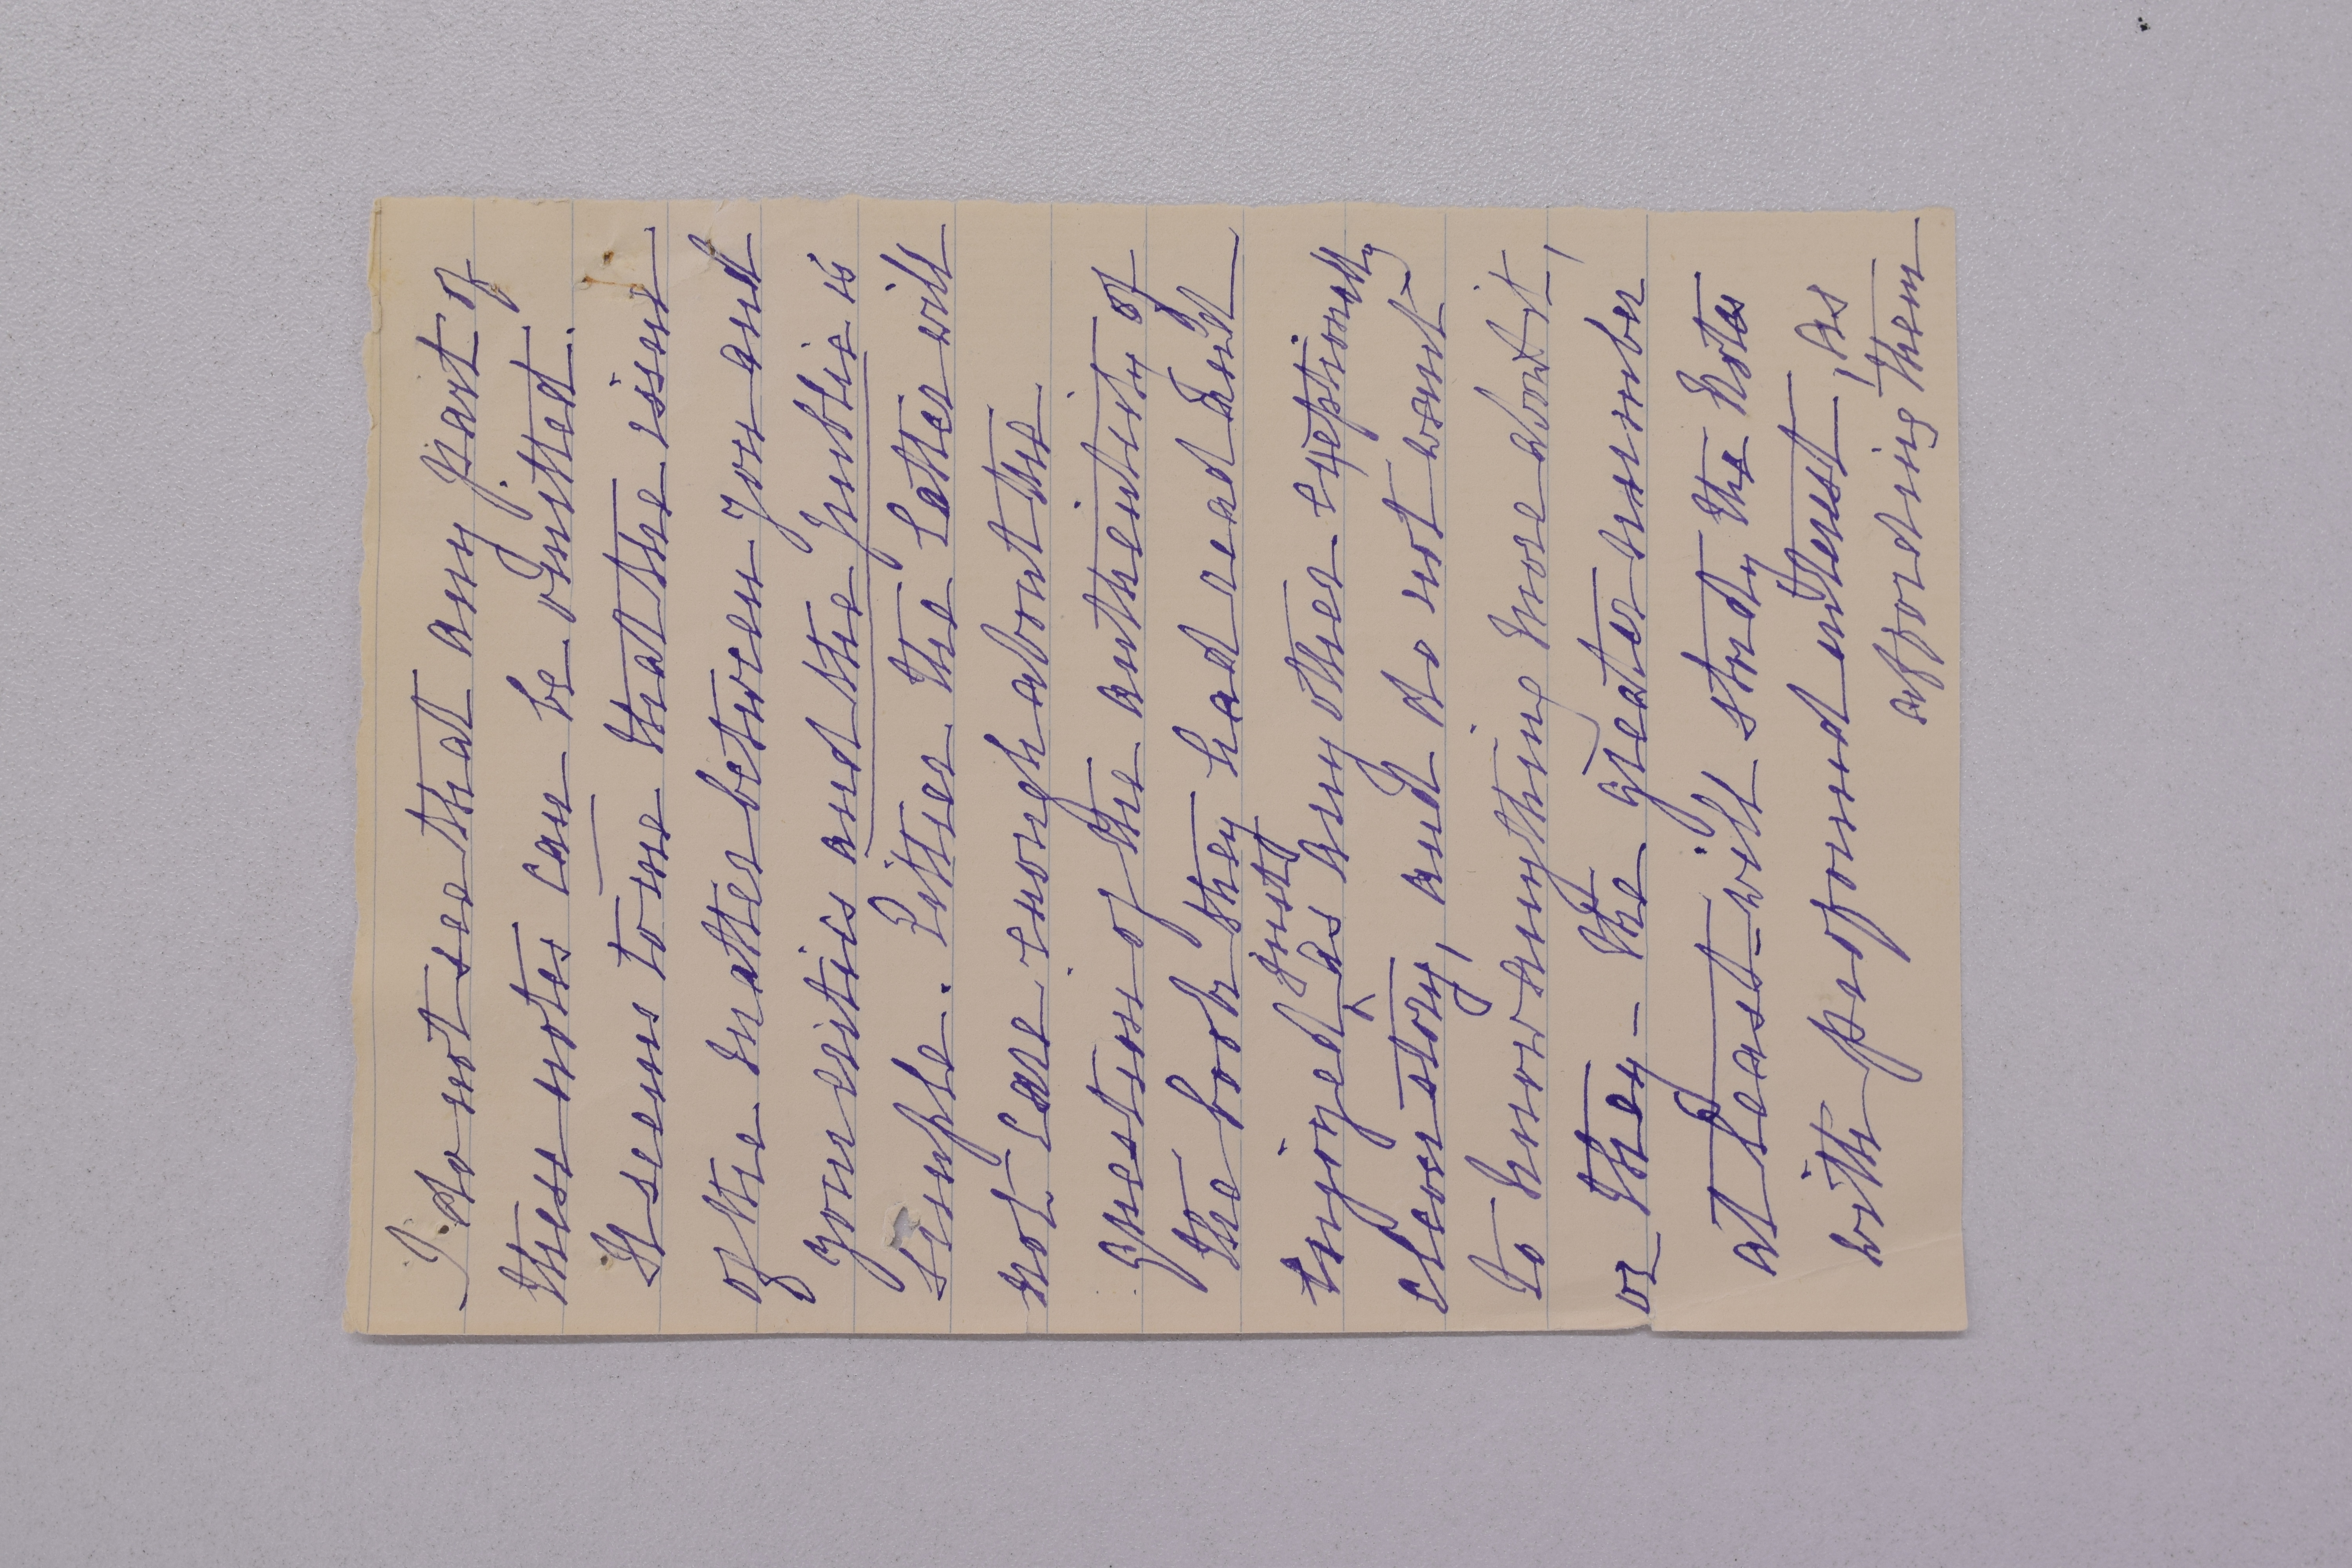 I do not see that any part of
these notes can be omitted.
It seems to me that the issue
of the matter between you and
your critics and the public is
simple. Either the latter will
not care enough about the
question of the authenticity of
the book they had read and
enjoyed just as any other exceptionally
clever story, and do not want
to know anything more about it,
or they - the greater number
at least - will study the notes
with profound interest, as
affording them